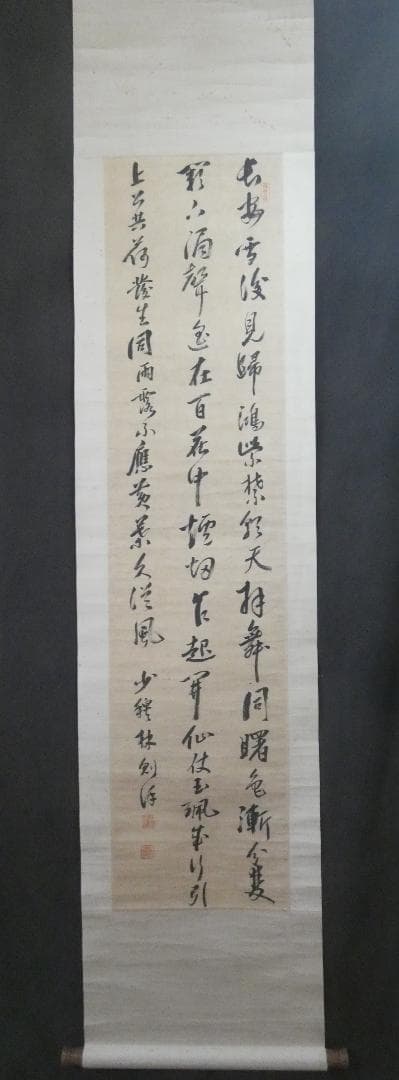 長安雪後見歸鴻紫禁朝天拜舞同曙色漸分雙
闕下漏聲遙在百花中爐烟乍起開仙仗玉珮成行引
上公共荷發生同雨露不應黃葉久從風 少穆林則徐